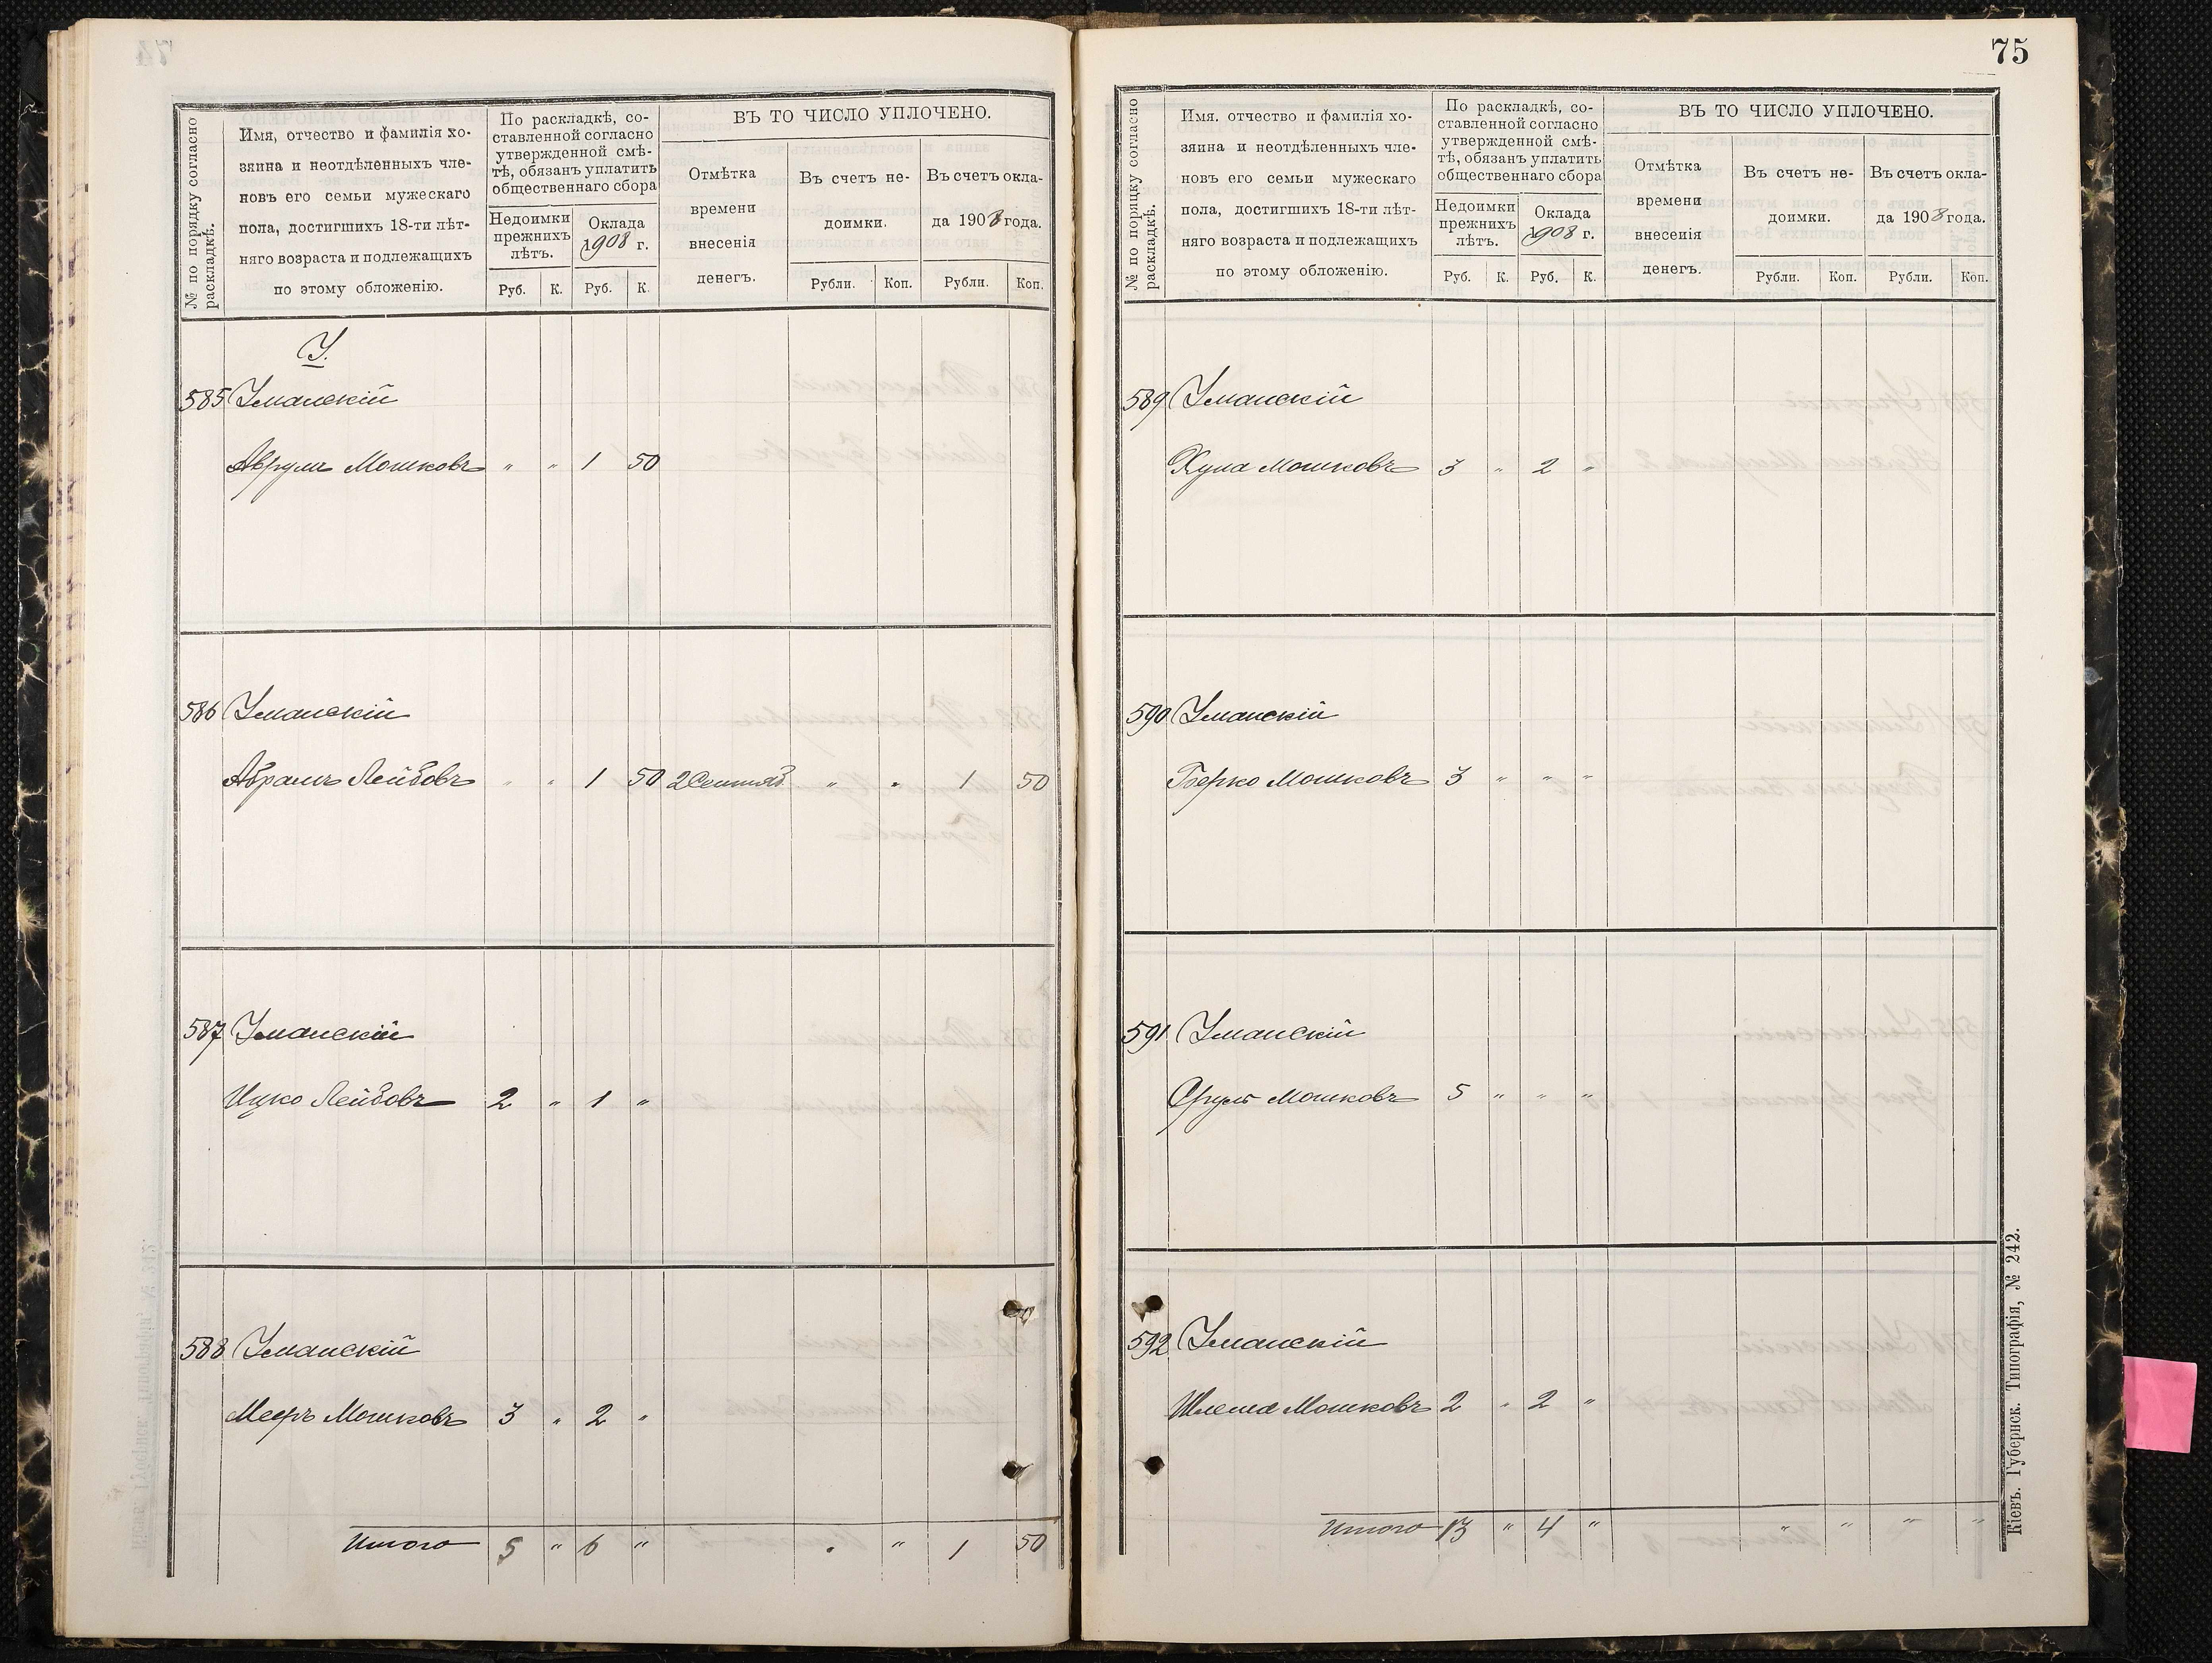 № по порядку согласно
раскладкѣ.
Имя, отчество и фамилія хо-
зяина и неотдѣленныхъ чле-
новъ его семьи мужескаго
пола, достигшихъ 18-ти лѣт-
няго возраста и подлежащихъ
по этому обложенію.
По раскладкѣ, со-
ставленной согласно
утвержденной смѣ-
тѣ, обязанъ уплатить
общественнаго сбора
Недоимки
прежнихъ
лѣтъ.
Оклада
1908 г.
Руб. К. Руб. К.
ВЪ ТО ЧИСЛО УПЛОЧЕНО.
Отмѣтка
времени
внесенія
денегъ.
Въ счетъ не-
доимки.
Въ счетъ окла-
да 1908 года.
Рубли. Коп. Рубли. Коп.
У.
585 Уманскій
Аврумъ Мошковъ " " 1 50
586 Уманскій
Абрамъ Лейбовъ " " 1 50 2 Сентяб. " " 1 50
587 Уманскій
Ицко Лейбовъ 2 " 1 "
588 Уманскій
Мееръ Мошковъ 3 " 2 "
Итого 5 " 6 " " " 1 50
75
№ по порядку согласно
раскладкѣ.
Имя, отчество и фамилія хо-
зяина и неотдѣленныхъ чле-
новъ его семьи мужескаго
пола, достигшихъ 18-ти лѣт-
няго возраста и подлежащихъ
по этому обложенію.
По раскладкѣ, со-
ставленной согласно
утвержденной смѣ-
тѣ, обязанъ уплатить
общественнаго сбора
Недоимки
прежнихъ
лѣтъ.
Оклада
1908 г.
Руб. К. Руб. К.
ВЪ ТО ЧИСЛО УПЛОЧЕНО.
Отмѣтка
времени
внесенія
денегъ.
Въ счетъ не-
доимки.
Въ счетъ окла-
да 1908 года.
Рубли. Коп. Рубли. Коп.
589 Уманскій
Хуна Мошковъ 3 " 2 "
590 Уманскій
Берко Мошковъ 3 " " "
591 Уманскій
Сруль Мошковъ 5 " " "
592 Уманскій
Шлема Мошковъ 2 " 2 "
Итого 13 " 4 " " " " "
Кіевъ. Губернск. Типографія, № 242.